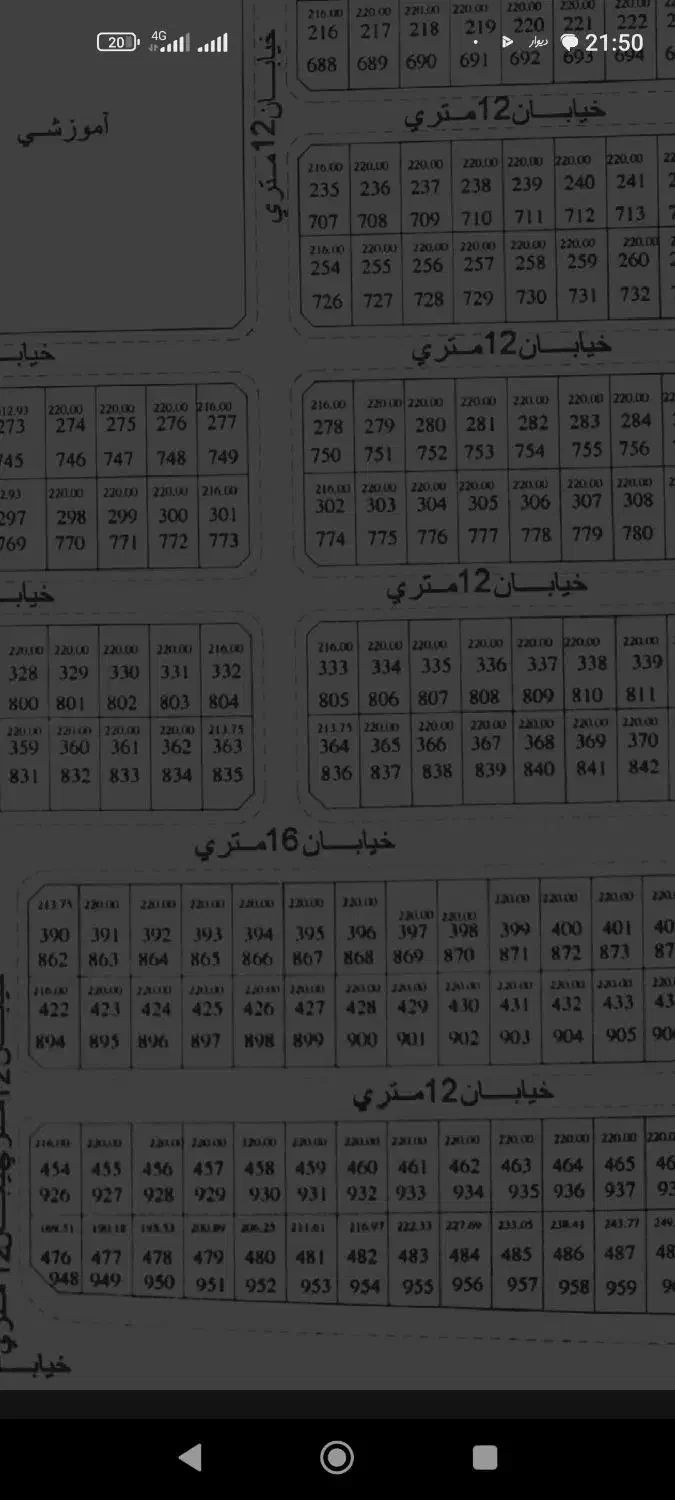 216.00 220.00 220.00 220.00 220.00 220.00 220.00
216 217 218 219 220 221 222
20 4G دیوار 21:50
688 689 690 691 692 693 694
خیابـــان12مـتري
خیابـــان12مـتري
آموزشي
216.00 220.00 220.00 220.00 220.00 220.00 220.00
235 236 237 238 239 240 241
707 708 709 710 711 712 713
216.00 220.00 220.00 220.00 220.00 220.00 220.00
254 255 256 257 258 259 260
726 727 728 729 730 731 732
خیابـــان12مـتري
خیابـ
12.93 220.00 220.00 220.00 216.00 216.00 220.00 220.00 220.00 220.00 220.00 220.00
273 274 275 276 277 278 279 280 281 282 283 284
745 746 747 748 749 750 751 752 753 754 755 756
2.93 220.00 220.00 220.00 216.00 216.00 220.00 220.00 220.00 220.00 220.00 220.00
297 298 299 300 301 302 303 304 305 306 307 308
769 770 771 772 773 774 775 776 777 778 779 780
خیابـــان12مـتري
خیابـ
220.00 220.00 220.00 220.00 216.00 216.00 220.00 220.00 220.00 220.00 220.00 220.00
328 329 330 331 332 333 334 335 336 337 338 339
800 801 802 803 804 805 806 807 808 809 810 811
220.00 220.00 220.00 220.00 213.75 213.75 220.00 220.00 220.00 220.00 220.00 220.00
359 360 361 362 363 364 365 366 367 368 369 370
831 832 833 834 835 836 837 838 839 840 841 842
خیابـــان16مـتري
213.75 220.00 220.00 220.00 220.00 220.00 220.00 220.00 220.00 220.00 220.00 220.00 220
390 391 392 393 394 395 396 397 398 399 400 401 40
862 863 864 865 866 867 868 869 870 871 872 873 87
216.00 220.00 220.00 220.00 220.00 220.00 220.00 220.00 220.00 220.00 220.00 220.00 220
422 423 424 425 426 427 428 429 430 431 432 433 43
894 895 896 897 898 899 900 901 902 903 904 905 90
خیابـــان12مـتري
216.00 220.00 220.00 220.00 220.00 220.00 220.00 220.00 220.00 220.00 220.00 220.00 220.0
454 455 456 457 458 459 460 461 462 463 464 465 46
926 927 928 929 930 931 932 933 934 935 936 937 93
190.18 195.53 200.89 206.25 211.61 216.97 222.33 227.69 233.05 238.41 243.77 249
476 477 478 479 480 481 482 483 484 485 486 487 48
948 949 950 951 952 953 954 955 956 957 958 959
خیابـ